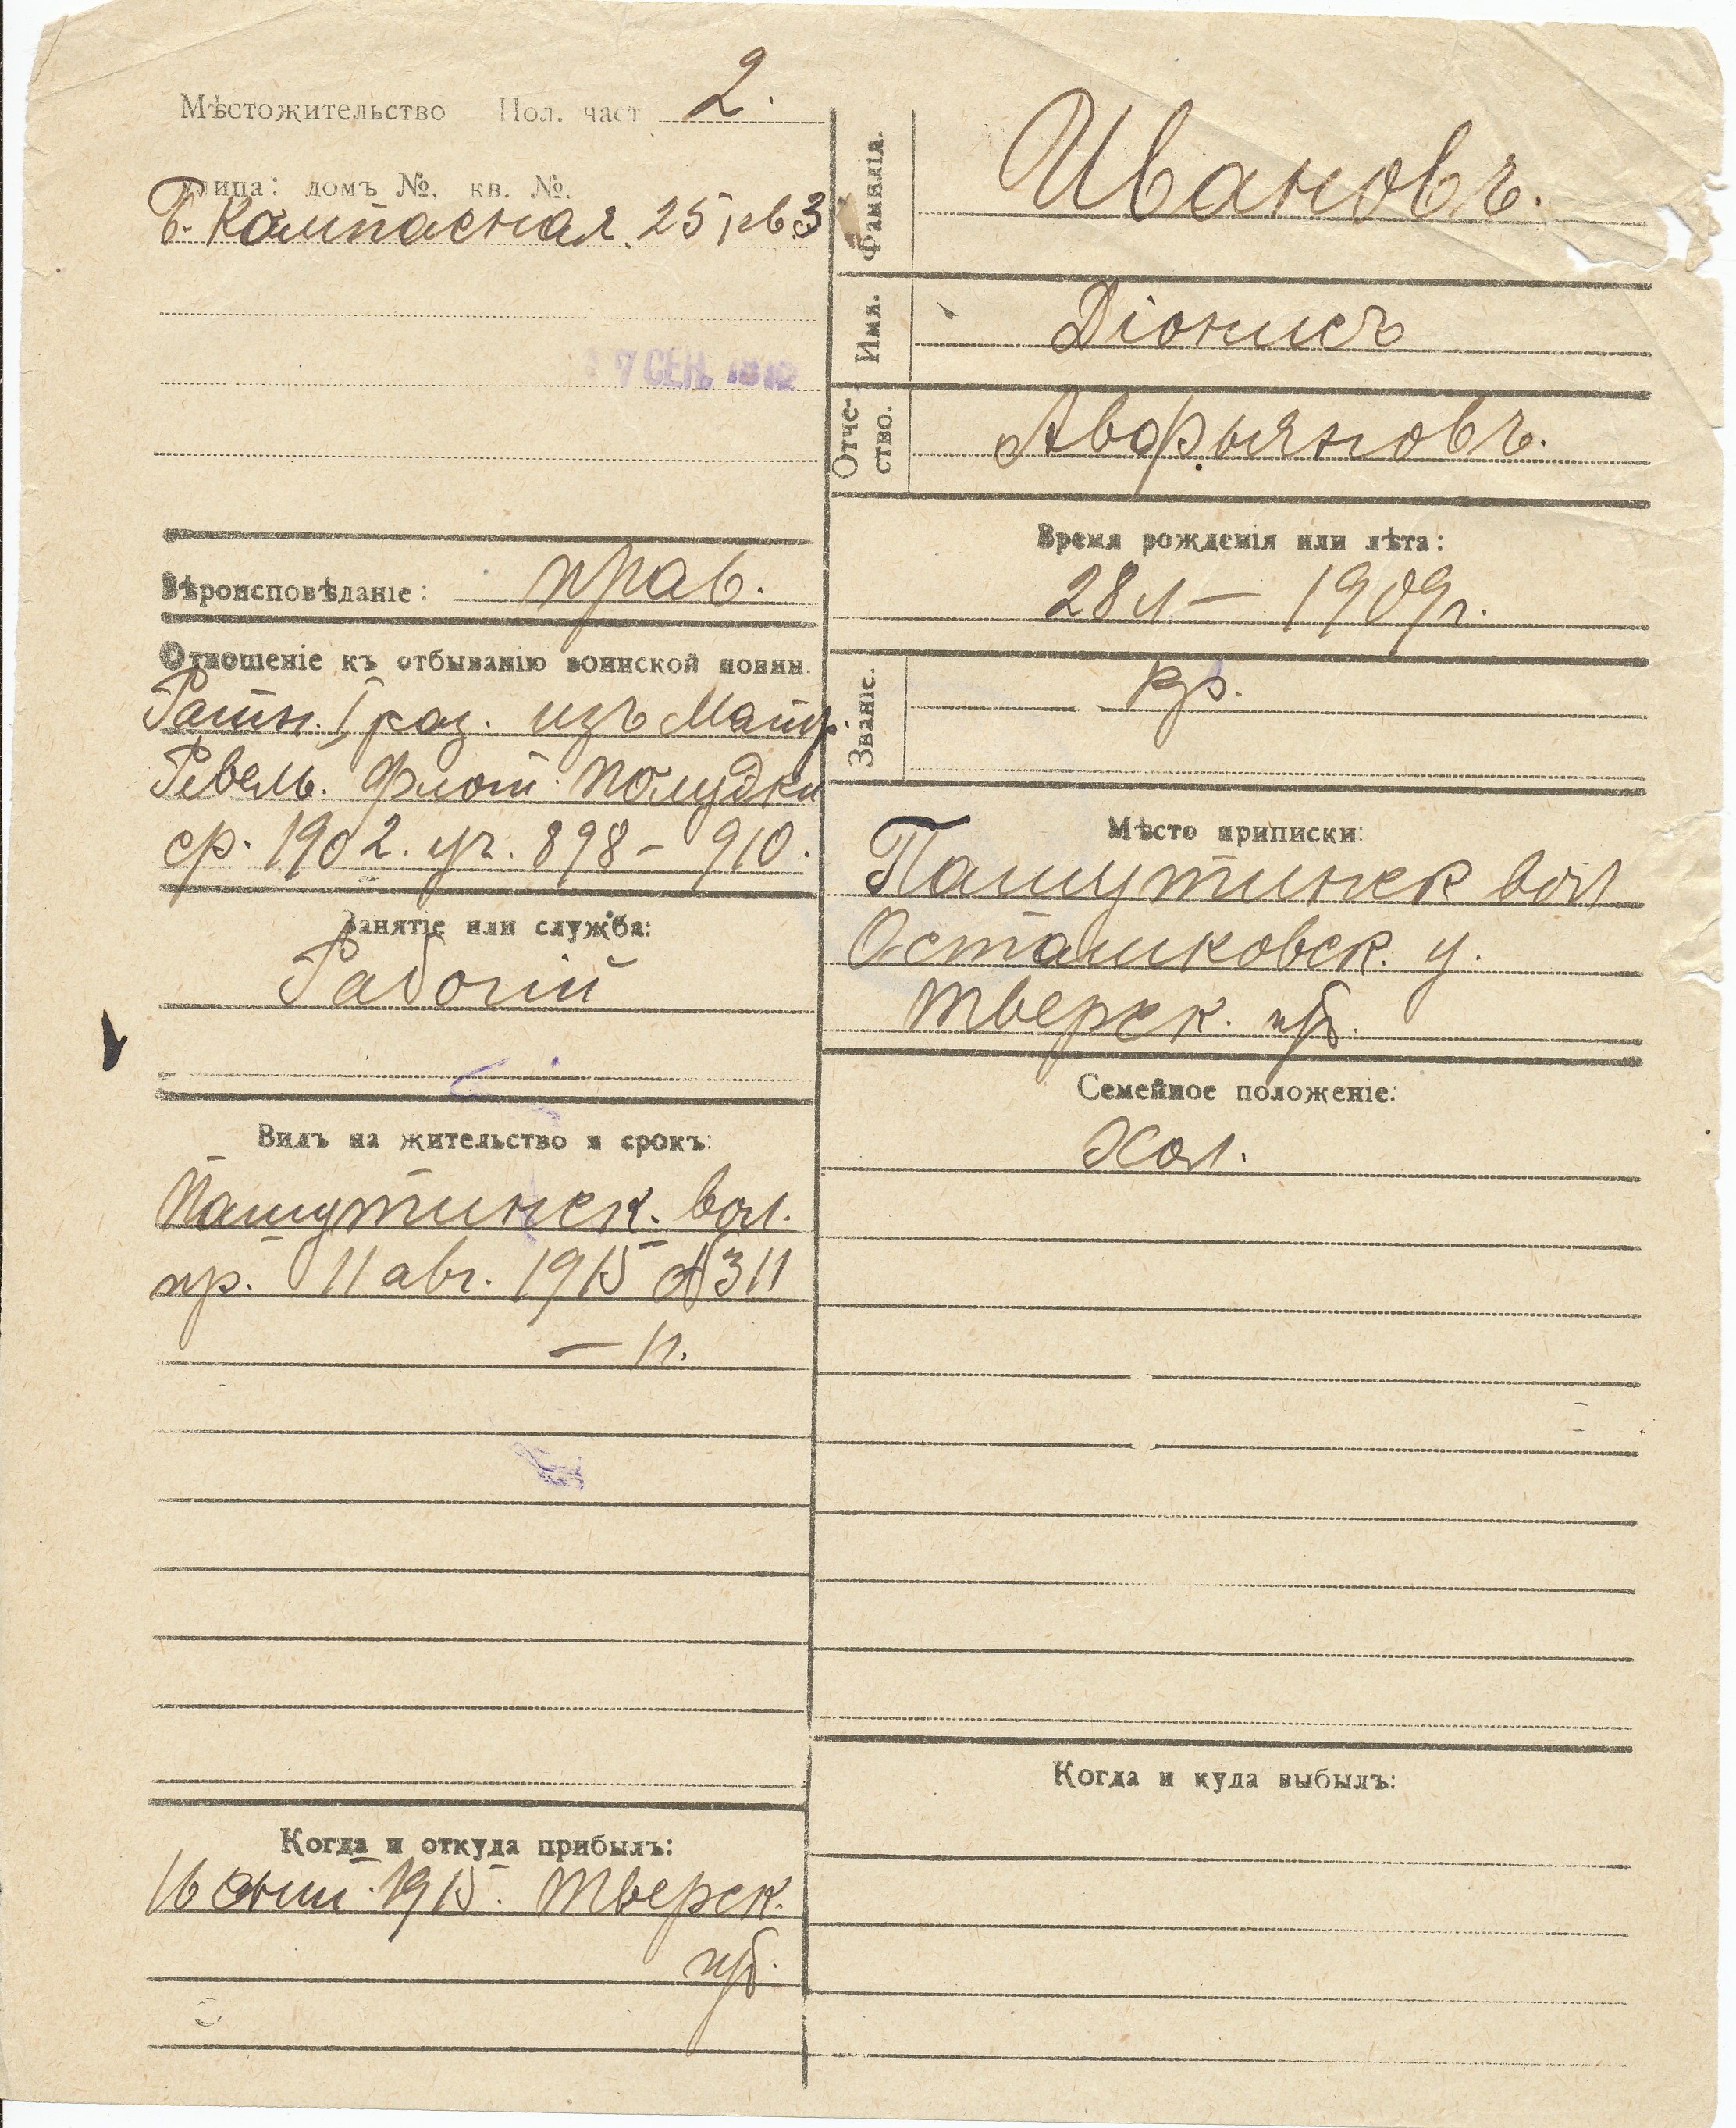 Мѣстожительство Пол. част 2.
улица: домъ №. кв. №.
Б. Компасная. 25, кв 3
17 СЕН.
Вѣроисповѣданіе: прав.
Отношеніе къ отбыванію воинской повин.
Ратн. I раз. изъ Матр.
Ревель. Флот. Полуэк
ср. 1902. уч. 898 – 910.
Занятіе или служба:
Рабочій
Видъ на жительство и срокъ:
Пашутинск. вол.
пр. 11 авг. 1915 № 311
Когда и откуда прибылъ:
16 1915. Тверск.
губ.
Фамилія.
Ивановъ.
Имя.
Діонисъ
Отче-
ство.
Аверьяновъ.
Время рожденія или лѣта:
28 л – 1909 г.
Званіе.
кр.
Мѣсто приписки:
Пашутинск вол
Осташковск. у.
Тверск. губ.
Семейное положеніе:
Хол.
Когда и куда выбылъ: